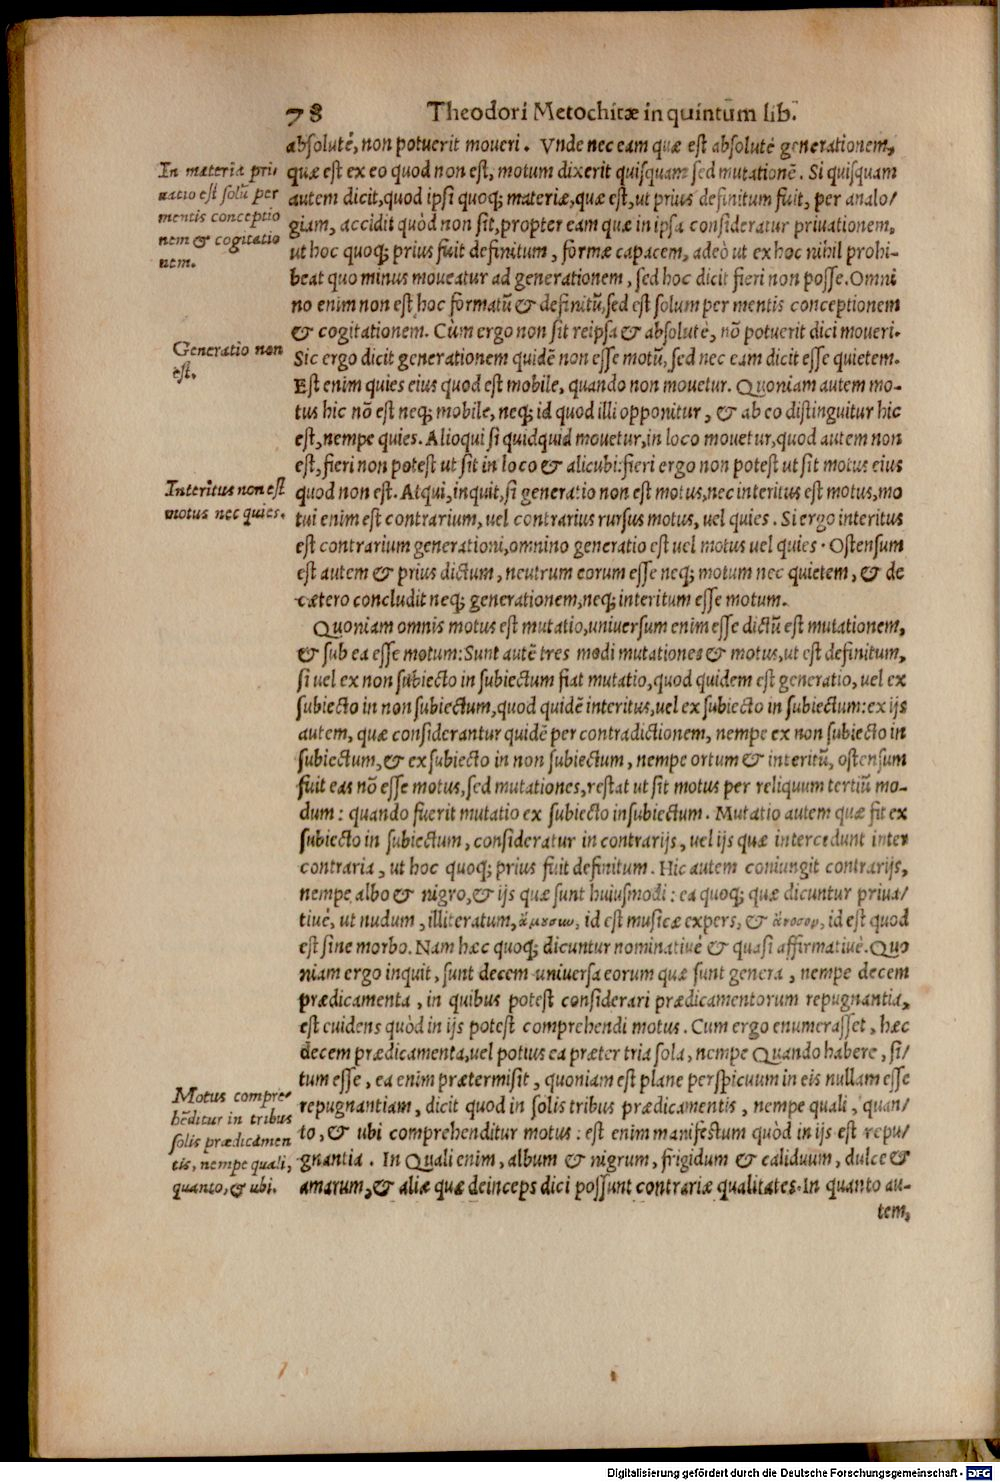 78 Theodori Metochitæ in quintum lib.
absolutè, non potuerit moveri. Vnde nec eam quæ est absolutè generationem,
In materia pri-
uatio est solũ per
mentis conceptio
nem & cogitatio
nem.
quæ est ex eo quod non est, motum dixerit quisquam: sed mutationẽ. Si quisquam
autem dicit, quod ipsi quoq; materiæ, quæ est, ut prius definitum fuit, per analo/
giam, accidit quòd non sit, propter eam quæ in ipsa consideratur priuationem,
ut hoc quoq; prius fuit definitum, formæ capacem, adeò ut ex hoc nihil prohi-
beat quo minus moueatur ad generationem, sed hoc dicit fieri non posse. Omni
no enim non est hoc formatũ & definitũ, sed est solum per mentis conceptionem
& cogitationem. Cùm ergo non sit reipsa & absolutè, nõ potuerit dici moueri.
Generatio non
est.
Sic ergo dicit generationem quidẽ non esse motũ, sed nec eam dicit esse quietem.
Est enim quies eius quod est mobile, quando non mouetur. Quoniam autem mo-
tus hic nõ est neq; mobile, neq; id quod illi opponitur, & ab eo distinguitur hic
est, nempe quies. Alioqui si quidquid mouetur, in loco mouetur, quod autem non
est, fieri non potest ut sit in loco & alicubi: fieri ergo non potest ut sit motus eius
Interitus non est
motus nec quies.
quod non est. At qui, inquit, si generatio non est motus, nec interitus est motus, mo
tui enim est contrarium, uel contrarius rursus motus, uel quies. Si ergo interitus
est contrarium generationi, omnino generatio est uel motus uel quies. Ostensum
est autem & prius dictum, neutrum eorum esse neq; motum nec quietem, & de
cætero concludit neq; generationem, neq; interitum esse motum.
Quoniam omnis motus est mutatio, uniuersum enim esse dictũ est mutationem,
& sub ea esse motum: Sunt autẽ tres modi mutationes & motus, ut est definitum,
si uel ex non subiecto in subiectum fiat mutatio, quod quidem est generatio, uel ex
subiecto in non subiectum, quod quidẽ interitus, uel ex subiecto in subiectum: ex ijs
autem, quæ considerantur quidẽ per contradictionem, nempe ex non subiecto in
subiectum, & ex subiecto in non subiectum, nempe ortum & interitũ, ostensum
fuit eas nõ esse motus, sed mutationes, restat ut sit motus per reliquum tertiũ mo-
dum: quando fuerit mutatio ex subiecto in subiectum. Mutatio autem quæ fit ex
subiecto in subiectum, consideratur in contrarijs, uel ijs quæ intercedunt inter
contraria, ut hoc quoq; prius fuit definitum. Hic autem coniungit contrarijs,
nempe albo & nigro, & ijs quæ sunt huiusmodi: ea quoq; quæ dicuntur priua/
tiuè, ut nudum, illiteratum, ἄμουσον, id est musicæ expers, & ἄνοσον, id est quod
est sine morbo. Nam hæc quoq; dicuntur nominatiuè & quasi affirmatiuè. Quo
niam ergo inquit, sunt decem uniuersa eorum quæ sunt genera, nempe decem
prædicamenta, in quibus potest considerari prædicamentorum repugnantia,
est euidens quòd in ijs potest comprehendi motus. Cum ergo enumerasset, hæc
decem prædicamenta, uel potius ea præter tria sola, nempe Quando habere, si/
tum esse, ea enim prætermisit, quoniam est plane perspicuum in eis nullam esse
Motus compre-
hẽditur in tribus
solis prædicamen
tis, nempe quali,
quanto, & ubi.
repugnantiam, dicit quod in solis tribus prædicamentis, nempe quali, quan/
to, & ubi comprehenditur motus: est enim manifestum quòd in ijs est repu/
gnantia. In Quali enim, album & nigrum, frigidum & caliduum, dulce &
amarum, & aliæ quæ deinceps dici possunt contrariæ qualitates. In quanto au-
tem,
Digitalisierung gefördert durch die Deutsche Forschungsgemeinschaft - DFG